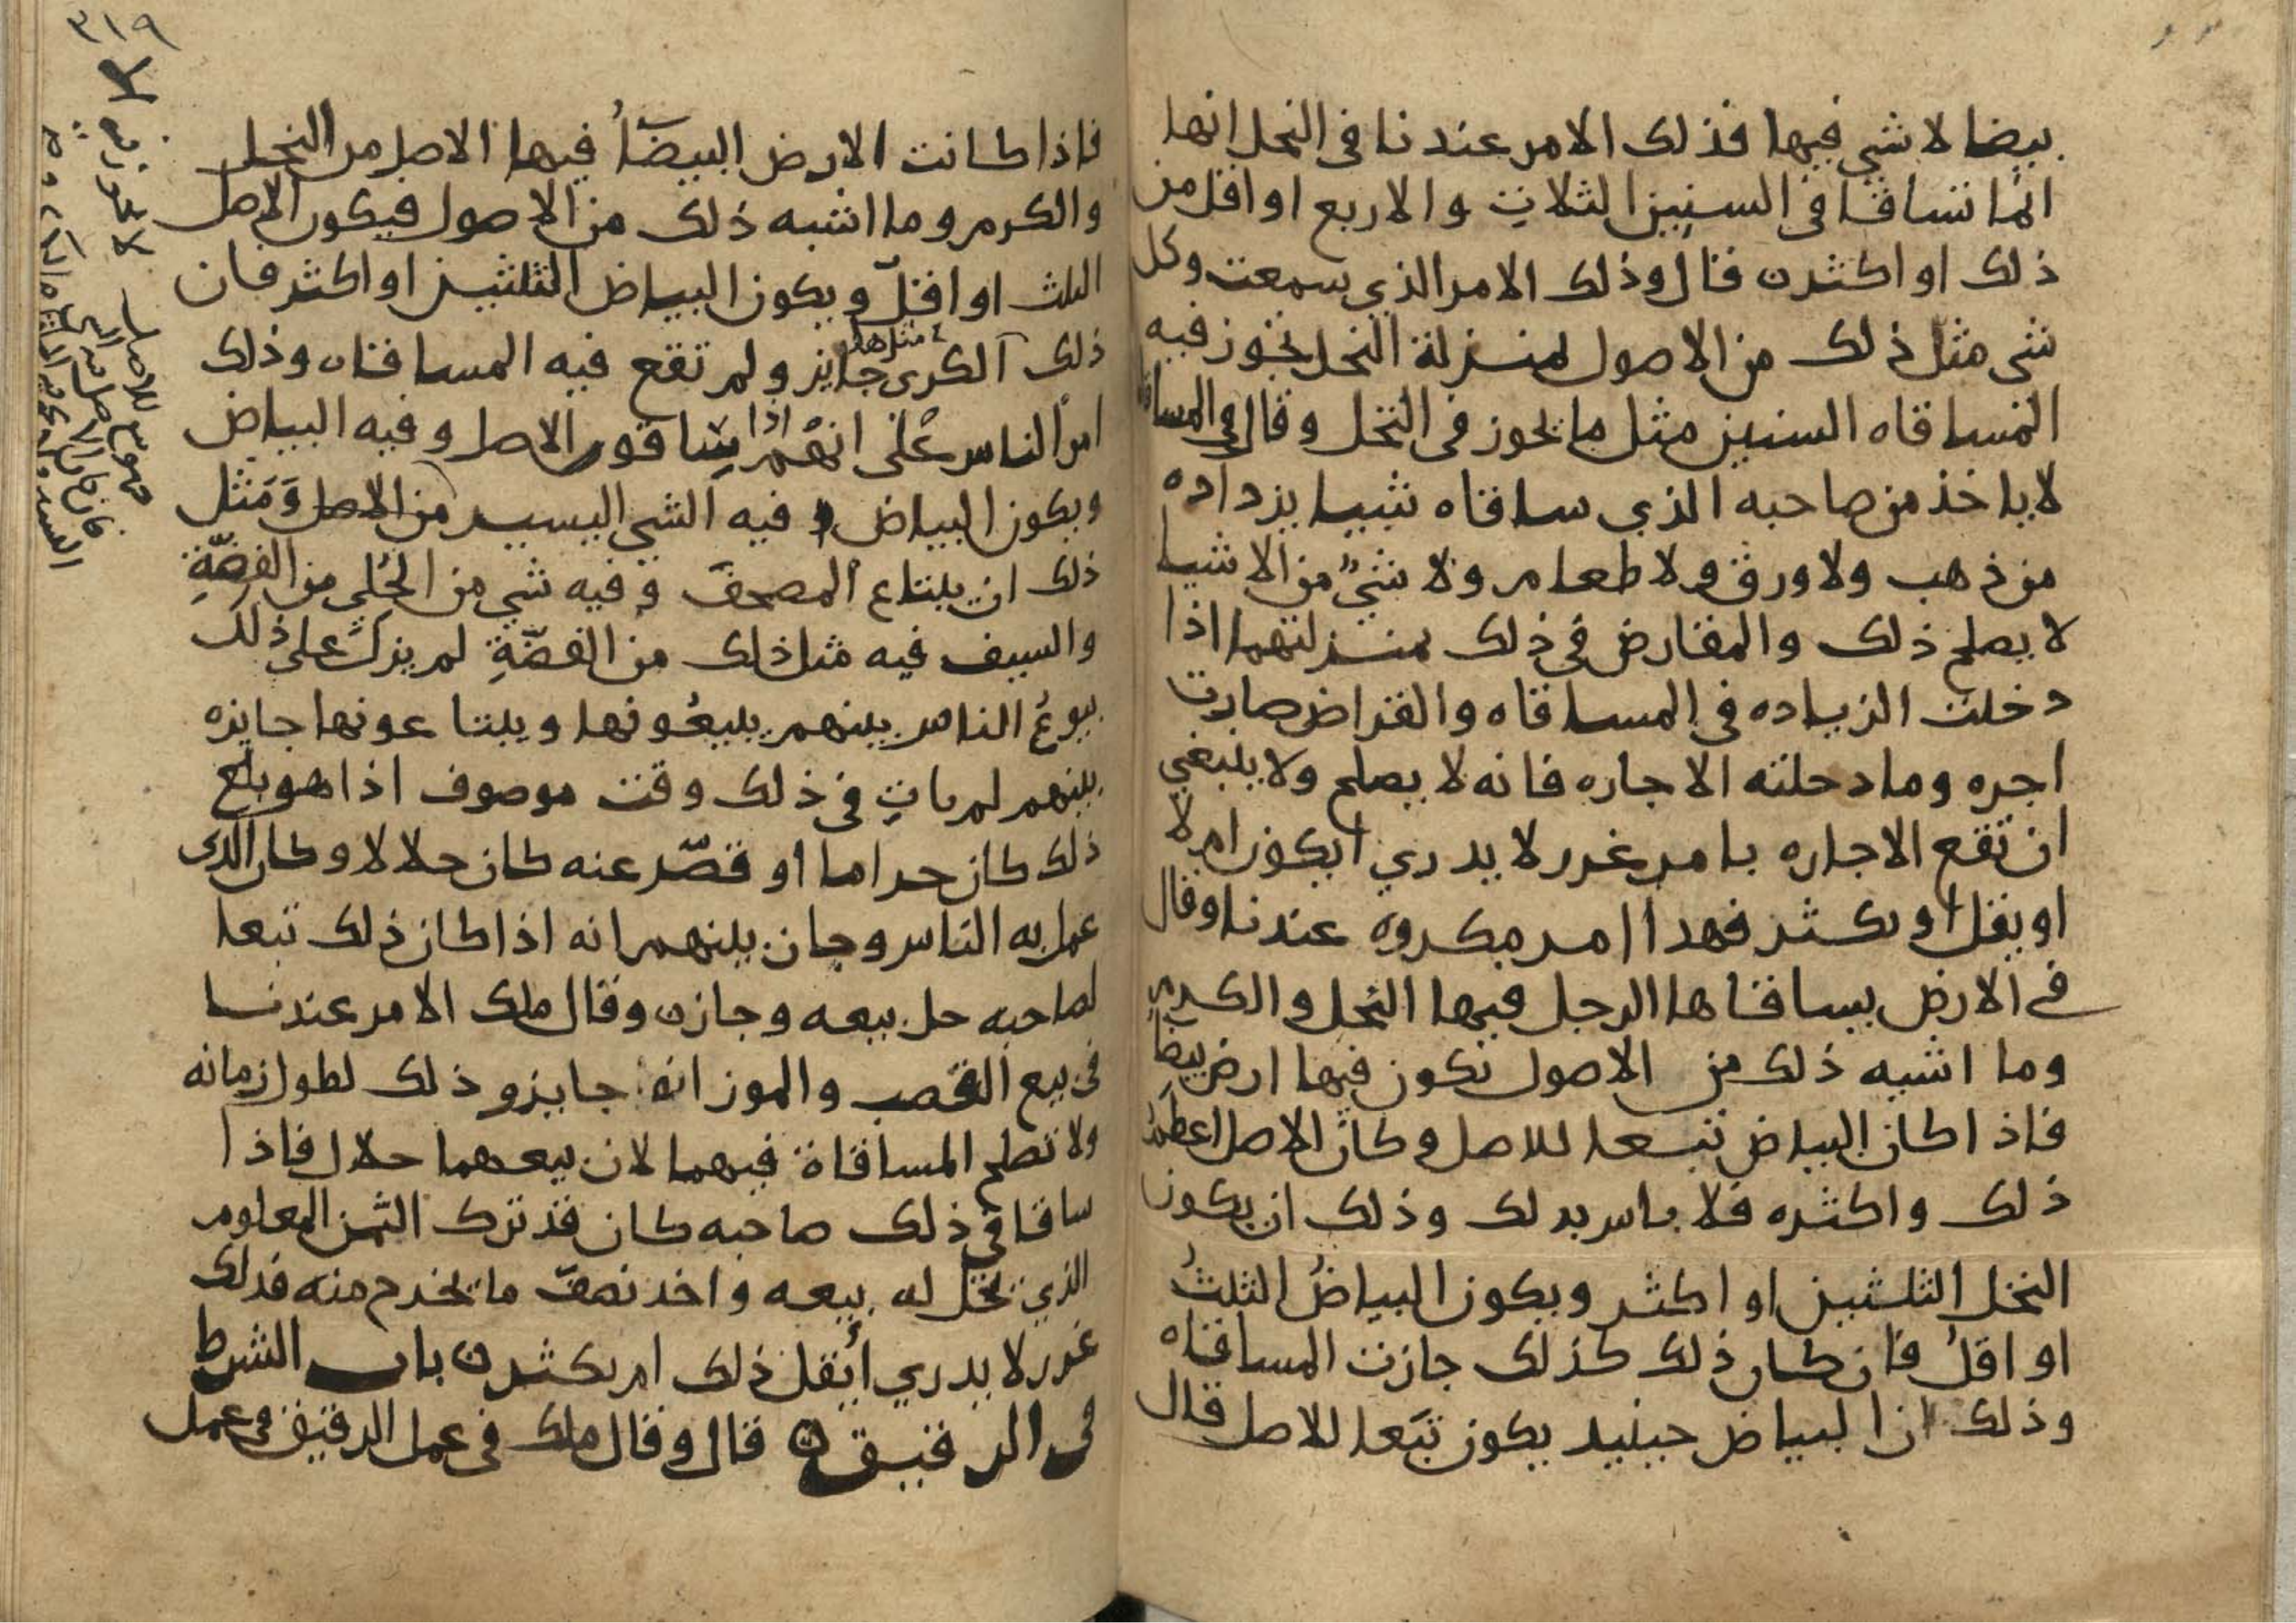 بيضا لا شي فيها فذلك الامر عندنا فى النخل انها
انما تساقا فى السنين الثلاث والاربع او اقل من
ذلك او اكثر ن قال وذلك الامر الذي سمعت وكل
شى مثل ذلك من الاصول بمنزلة النخل تجوز فيه
المساقاه السنين مثل ما يجوز فى النخل وقال فى المساقا
لا ياخذ من صاحبه الذي ساقاه شيا يزداده
من ذهب ولا ورق ولا طعام ولا شيٍ من الاشيا
لا يصلح ذلك والمقارض في ذلك بمنزلتهما اذا
دخلت الزياده في المساقاه والقراض صارت
اجره وما دخلته الاجاره فانه لا يصلح ولا ينبغي
ان تقع الاجاره بامر غرر لا يدري ايكون ام لا
او يقل او يكثر فهذا امر مكروه عندنا وقال
في الارض يساقاها الرجل فيها النخل والكرم
وما اشبه ذلك من الاصول تكون فيها ارض بيضا
فاذا كان البياض تبعا للاصل وكان الاصل اعظمُ
ذلك واكثره فلا باس بذلك وذلك ان يكون
النخل الثلثين او اكثر ويكون البياضُ الثلثُ
او اقل فان كان ذلك كذلك جازت المساقاه
وذلك ان البياض حينيد يكون تبَعا للاصل قال
٣١٩
فاذا كانت الارض البيضآُ فيها الاصل من النخل
والكرم وما اشبه ذلك من الاصول فيكون الاصل
الثلث او اقلّ ويكون البياض الثلثين او اكثر فان
ذلك الكرى مثلها جايز ولم تقع فيه المساقاه وذلك
امر الناس عَلى انهُم اذا يساقون الاصل وفيه البياض
ويكون البياض فيه الشي اليسير من الاصل وَمَثل
ذلك ان يبتاع المصحف وفيه شي من الحُلي من الفِضّةِ
والسيف فيه مثل ذلك من الفضّةِ لم يزل على ذلك
بيوعُ الناس بينهم يبيعُونها ويبتاعونها جايزه
بينهم لم ياتِ في ذلك وقت موصوف اذا هو بلغ
ذلك كان حراما او قصّر عنه كان حلالا وكان الذى
عمل به الناس وجاز بينهم انه اذا كان ذلك تبعا
لصاحبه حل بيعه وجاز ن وقال ملك الامر عندنا
فى بيع القصب والموز انه جايز وذلك لطول زمانه
ولا تصلح المساقاة فيهما لان بيعهما حلال فاذا
ساقا في ذلك صاحبه كان قد ترك الثمن المعلوم
الذي يحل له بيعه واخذ نصف ما يخرج منه فذلك
غرر لا يدري أيقل ذلك ام يكثر ن باب الشرط
فى الرقيق ن قال وقال ملك فى عمل الرقيق فى عمل